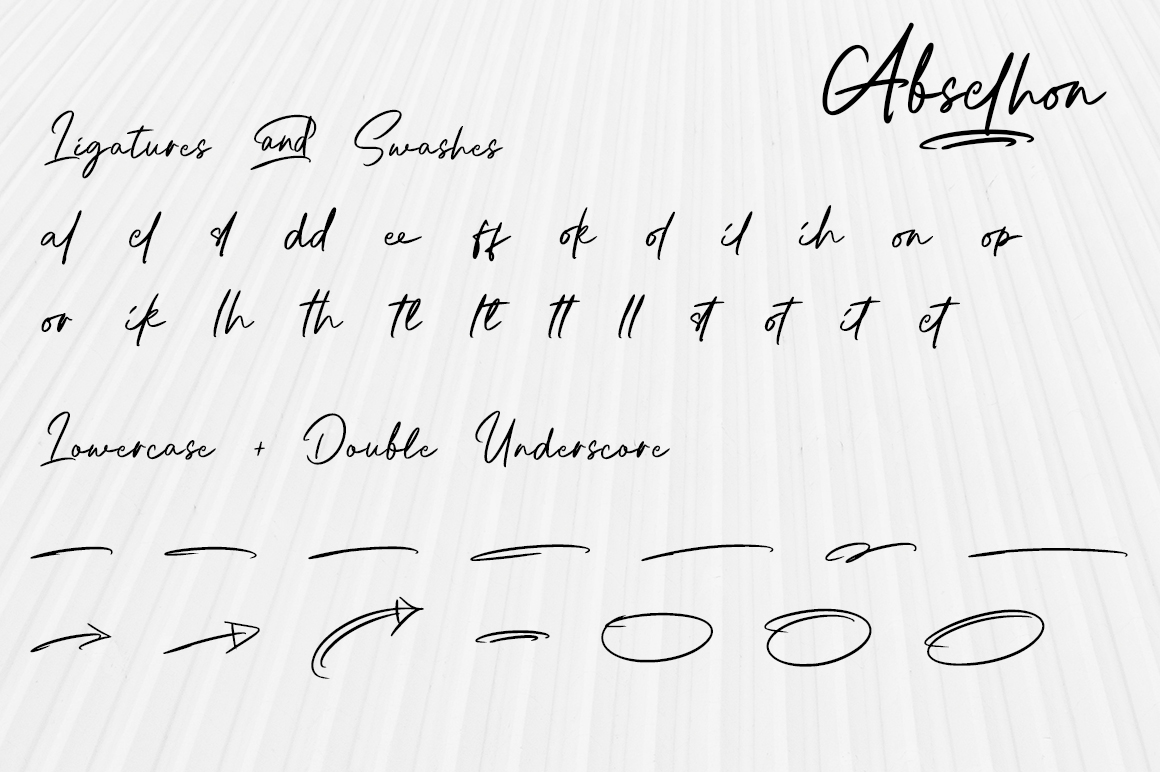 Abselhon
Ligatures and Swashes
al el sl dd ee ff ok ol il ih on op
or ik lh th tt ll st ot it et
Lowercase + Double Underscore